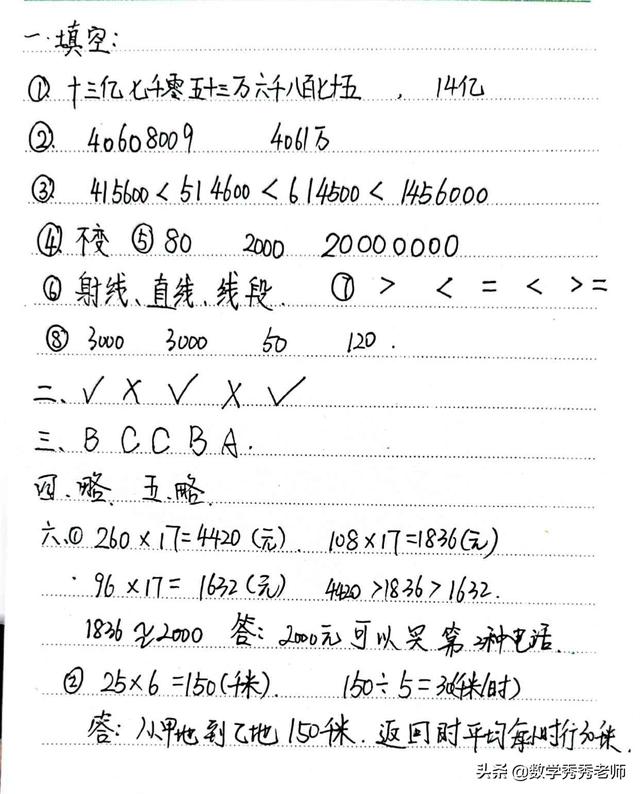 一、填空:
① 十三亿七千零五十三万六千八百七十五 , 14亿
② 40608009 4061万
③ 415600 < 514600 < 614500 < 1456000
④ 不变 ⑤ 80 2000 20000000
⑥ 射线、直线、线段. ⑦ > < = < > =
⑧ 3000 3000 50 120 .
二、√ × √ × √
三、B C C B A .
四、略 五、略
六、① 260×17=4420(元). 108×17=1836(元)
96×17= 1632(元) 4420>1836>1632.
1836≈2000 答: 2000元可以买第2种电话.
② 25×6=150(千米). 150÷5=30(千米/时)
答: 从甲地到乙地150千米. 返回时平均每小时行30千米.
头条 @数学秀秀老师